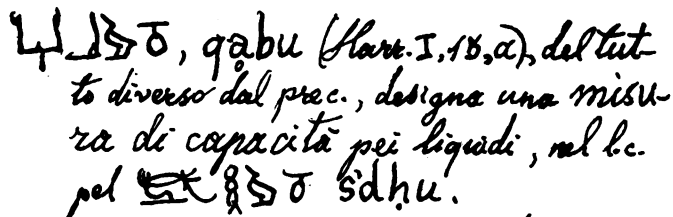 , qạbu (Harr. I, 18, a), del tut-
to diverso dal prec., designa una misu-
ra di capacità pei liquidi, nel l.c.
pel śdḥu.